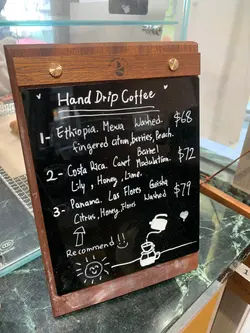 Hand Drip Coffee
1- Ethiopia. Mewa Washed. $68
fingered citron, berries, Peach.
2- Costa Rica. Canet Modulation. Barbel $72
Lily, Honey, Lime.
3- Panama. Las Flores Geisha Washed $79
Citrus, Honey, Flores
Recommend!!